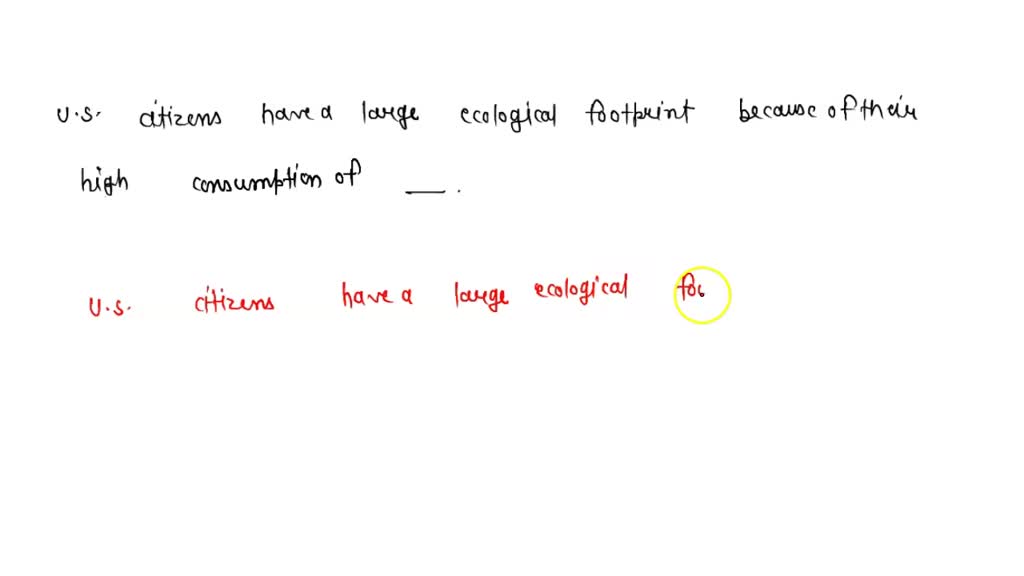 U.S. citizens have a large ecological footprint because of their
high consumption of ___.
U.S. citizens have a large ecological foo